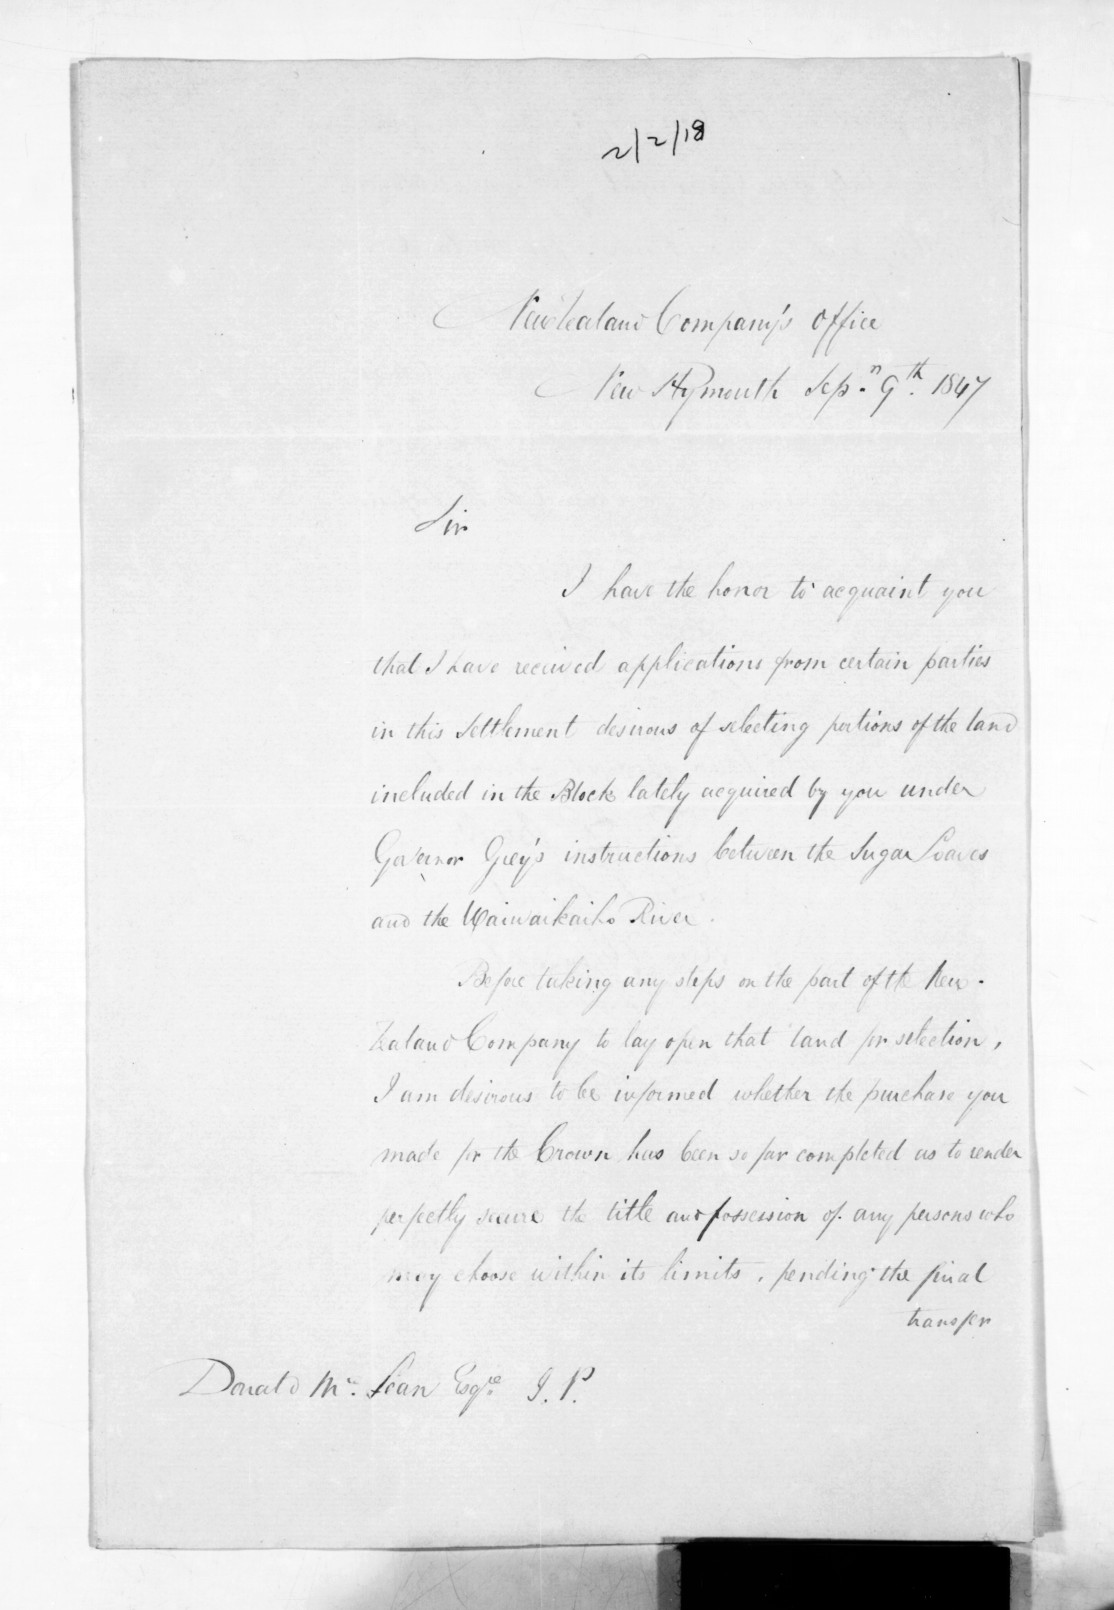 2/2/18
New Zealand Company's Office
New Plymouth Sep.r 9th. 1847
Sir
I have the honor to acquaint you
that I have received applications from certain parties
in this Settlement desirous of selecting portions of the land
included in the Block lately acquired by you under
Governor Grey's instructions between the Sugar Loaves
and the Waiwaikaiho River.
Before taking any steps on the part of the New
Zealand Company to lay open that land for selection,
I am desirous to be informed whether the purchase you
made for the Crown has been so far completed as to render
perfectly secure the title and possession of any persons who
may choose within its limits, pending the final
transfer
Donald Mc. Lean Esqre. J.P.